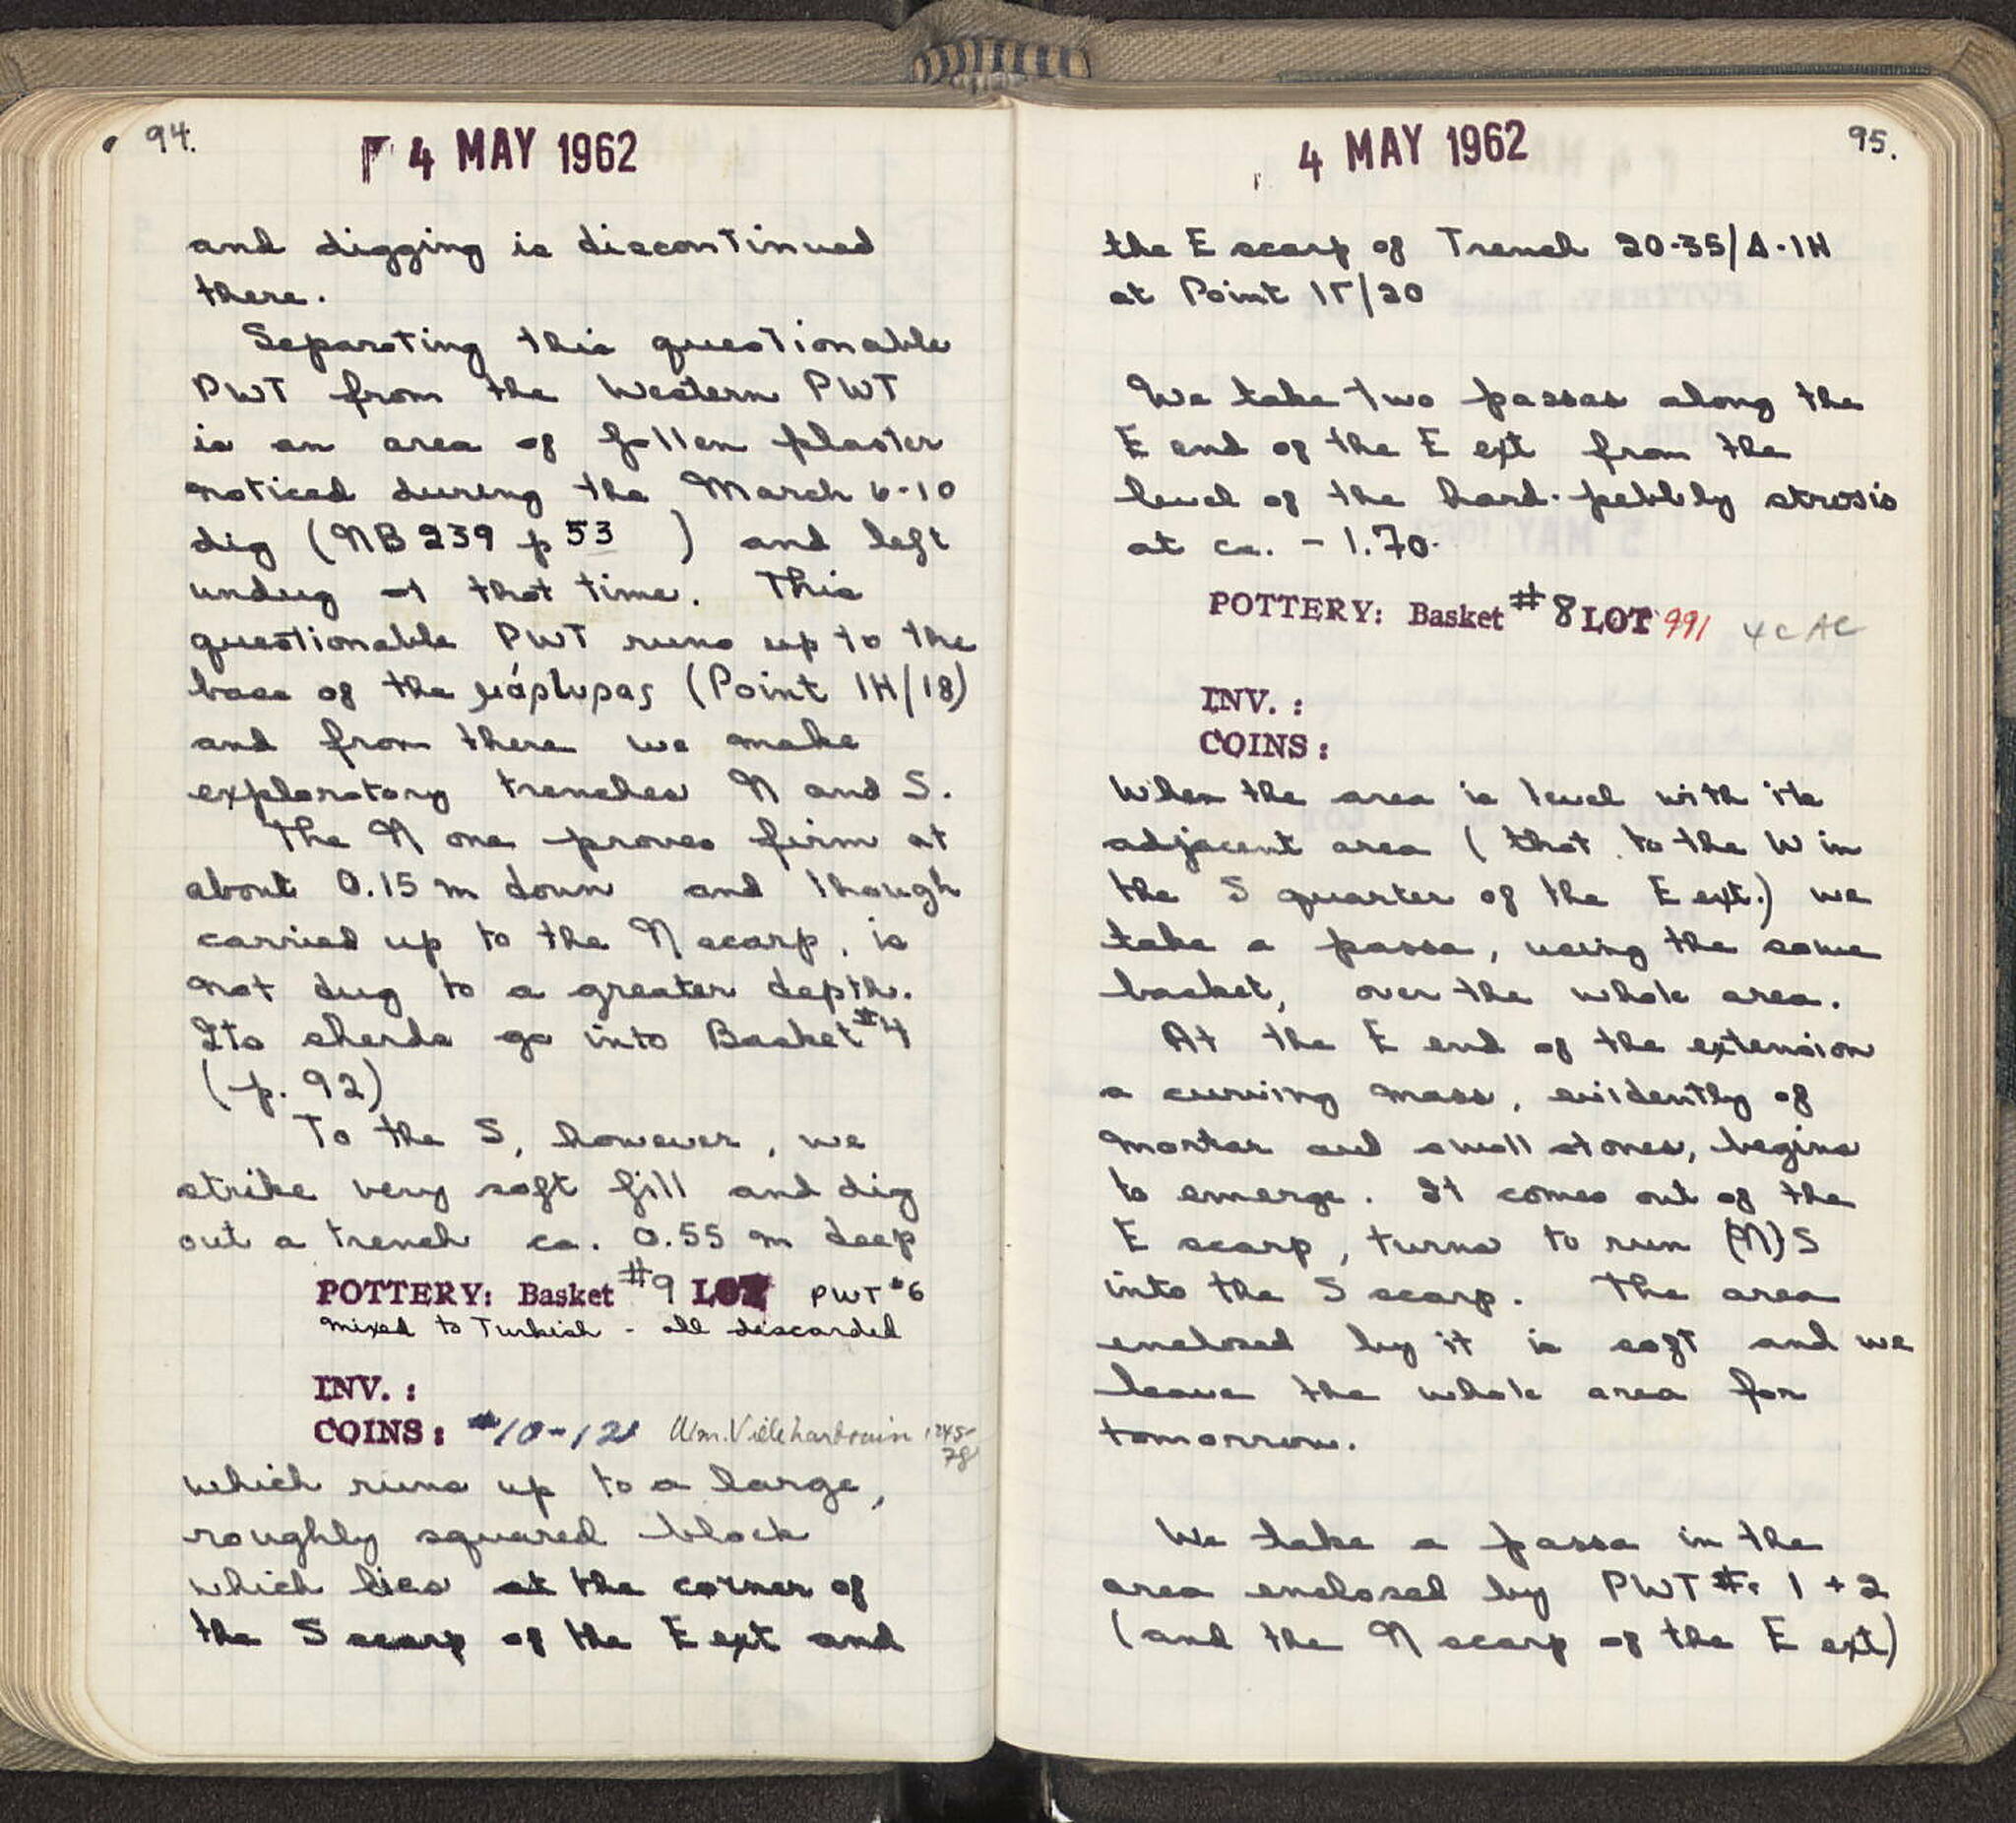 94.
4 MAY 1962
and digging is discontinued
there.
Separating this questionable
PWT from the Western PWT
is an area of fallen plaster
noticed during the March 6-10
dig (NB 239 p 53 ) and left
undug at that time. This
questionable PWT runs up to the
base of the μάρτυρας (Point 1H/18)
and from there we make
exploratory trenches N and S.
The N one proves firm at
about 0.15 m down and though
carried up to the N scarp, is
not dug to a greater depth.
Its sherds go into Basket #4
(p. 92)
To the S, however, we
strike very soft fill and dig
out a trench ca. 0.55 m deep
POTTERY: Basket #9 LOT PWT #6
mixed to Turkish - all discarded
INV. :
COINS : #10-12 Wm. Villehardouin 1245-
78
which runs up to a large,
roughly squared block
which lies at the corner of
the S scarp of the E ext and
95.
4 MAY 1962
the E scarp of Trench 20-35/Δ-1H
at Point 15/20
We take two passas along the
E end of the E ext from the
level of the hard-pebbly strosis
at ca. - 1.70.
POTTERY: Basket #8 LOT 991 4c AC
INV. :
COINS :
When the area is level with its
adjacent area (that to the W in
the S quarter of the E ext.) we
take a passa, using the same
basket, over the whole area.
At the E end of the extension
a curving mass, evidently of
mortar and small stones, begins
to emerge. It comes out of the
E scarp, turns to run (N)S
into the S scarp. The area
enclosed by it is soft and we
leave the whole area for
tomorrow.
We take a passa in the
area enclosed by PWT #s 1 + 2
(and the N scarp of the E ext)